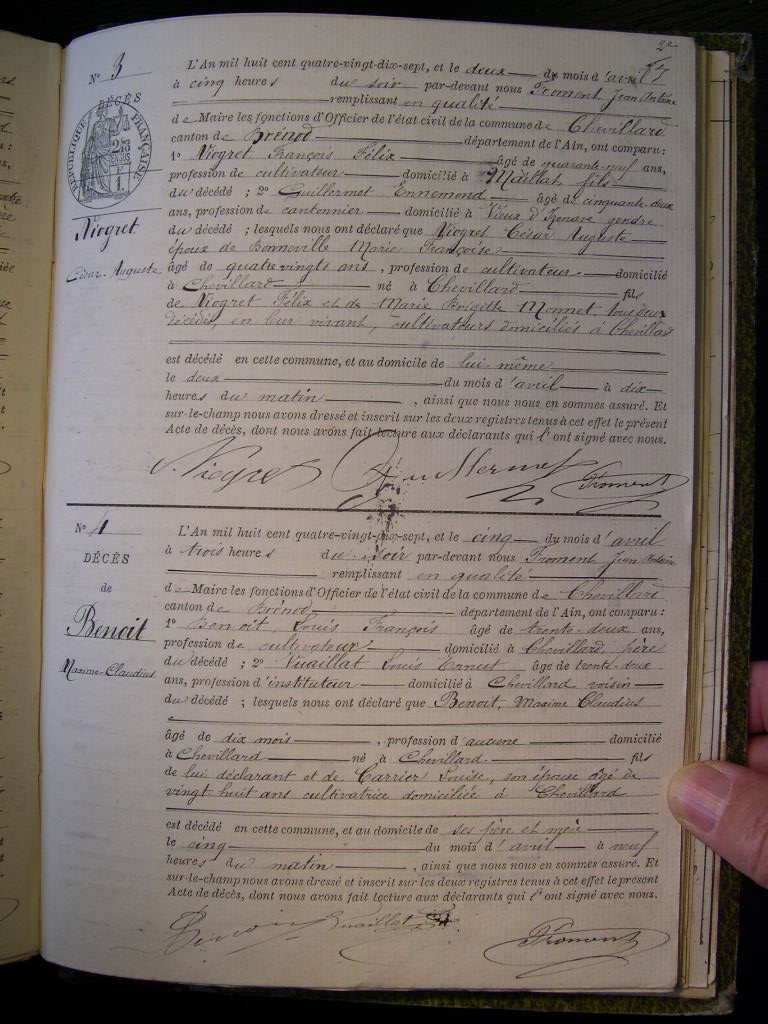 2e
N° 3
DÉCÈS
RÉPUBLIQUE FRANÇAISE
Niogret
César Auguste
L'An mil huit cent quatre-vingt-dix-sept, et le deux du mois d'avril
à cinq heures du soir par-devant nous Froment, Jean Antoine
remplissant en qualité
de Maire les fonctions d'Officier de l'état civil de la commune de Chevillard
canton de Brénod département de l'Ain, ont comparu :
1° Niogret, François Félix âgé de quarante-neuf ans,
profession de cultivateur domicilié à Maillat, fils
du décédé ; 2° Guillermet Ennemond âgé de cinquante-deux
ans, profession de cantonnier domicilié à Vieux d'Izenave gendre
du décédé ; lesquels nous ont déclaré que Niogret César Auguste
époux de Bonneville Marie Françoise
âgé de quatre vingts ans, profession de cultivateur domicilié
à Chevillard né à Chevillard fils
de Niogret Félix et de Marie Brigitte Monnet, tous deux
décédés, en leur vivant, cultivateurs domiciliés à Chevillard
est décédé en cette commune, et au domicile de lui-même
le deux du mois d'avril à dix
heures du matin, ainsi que nous nous en sommes assuré. Et
sur-le-champ nous avons dressé et inscrit sur les deux registres tenus à cet effet le présent
Acte de décès, dont nous avons fait lecture aux déclarants qui l'ont signé avec nous.
Niogret Guillermet Froment
N° 4
DÉCÈS
de
Benoit
Maxime-Claudius
L'An mil huit cent quatre-vingt-dix-sept, et le cinq du mois d'avril
à trois heures du soir par-devant nous Froment Jean Antoine
remplissant en qualité
de Maire les fonctions d'Officier de l'état civil de la commune de Chevillard
canton de Brénod département de l'Ain, ont comparu :
1° Benoit, Louis François âgé de trente-deux ans,
profession de cultivateur domicilié à Chevillard, père
du décédé ; 2° Vuaillat Louis Ernest âgé de trente-deux
ans, profession d'instituteur domicilié à Chevillard voisin
du décédé ; lesquels nous ont déclaré que Benoit, Maxime Claudius
âgé de dix mois, profession d'aucune domicilié
à Chevillard né à Chevillard fils
de lui déclarant et de Carrier Louise, son épouse âgé de
vingt huit ans cultivatrice domiciliée à Chevillard
est décédé en cette commune, et au domicile de ses père et mère
le cinq du mois d'avril à neuf
heures du matin, ainsi que nous nous en sommes assuré. Et
sur-le-champ nous avons dressé et inscrit sur les deux registres tenus à cet effet le présent
Acte de décès, dont nous avons fait lecture aux déclarants qui l'ont signé avec nous.
Benoit Vuaillat Froment